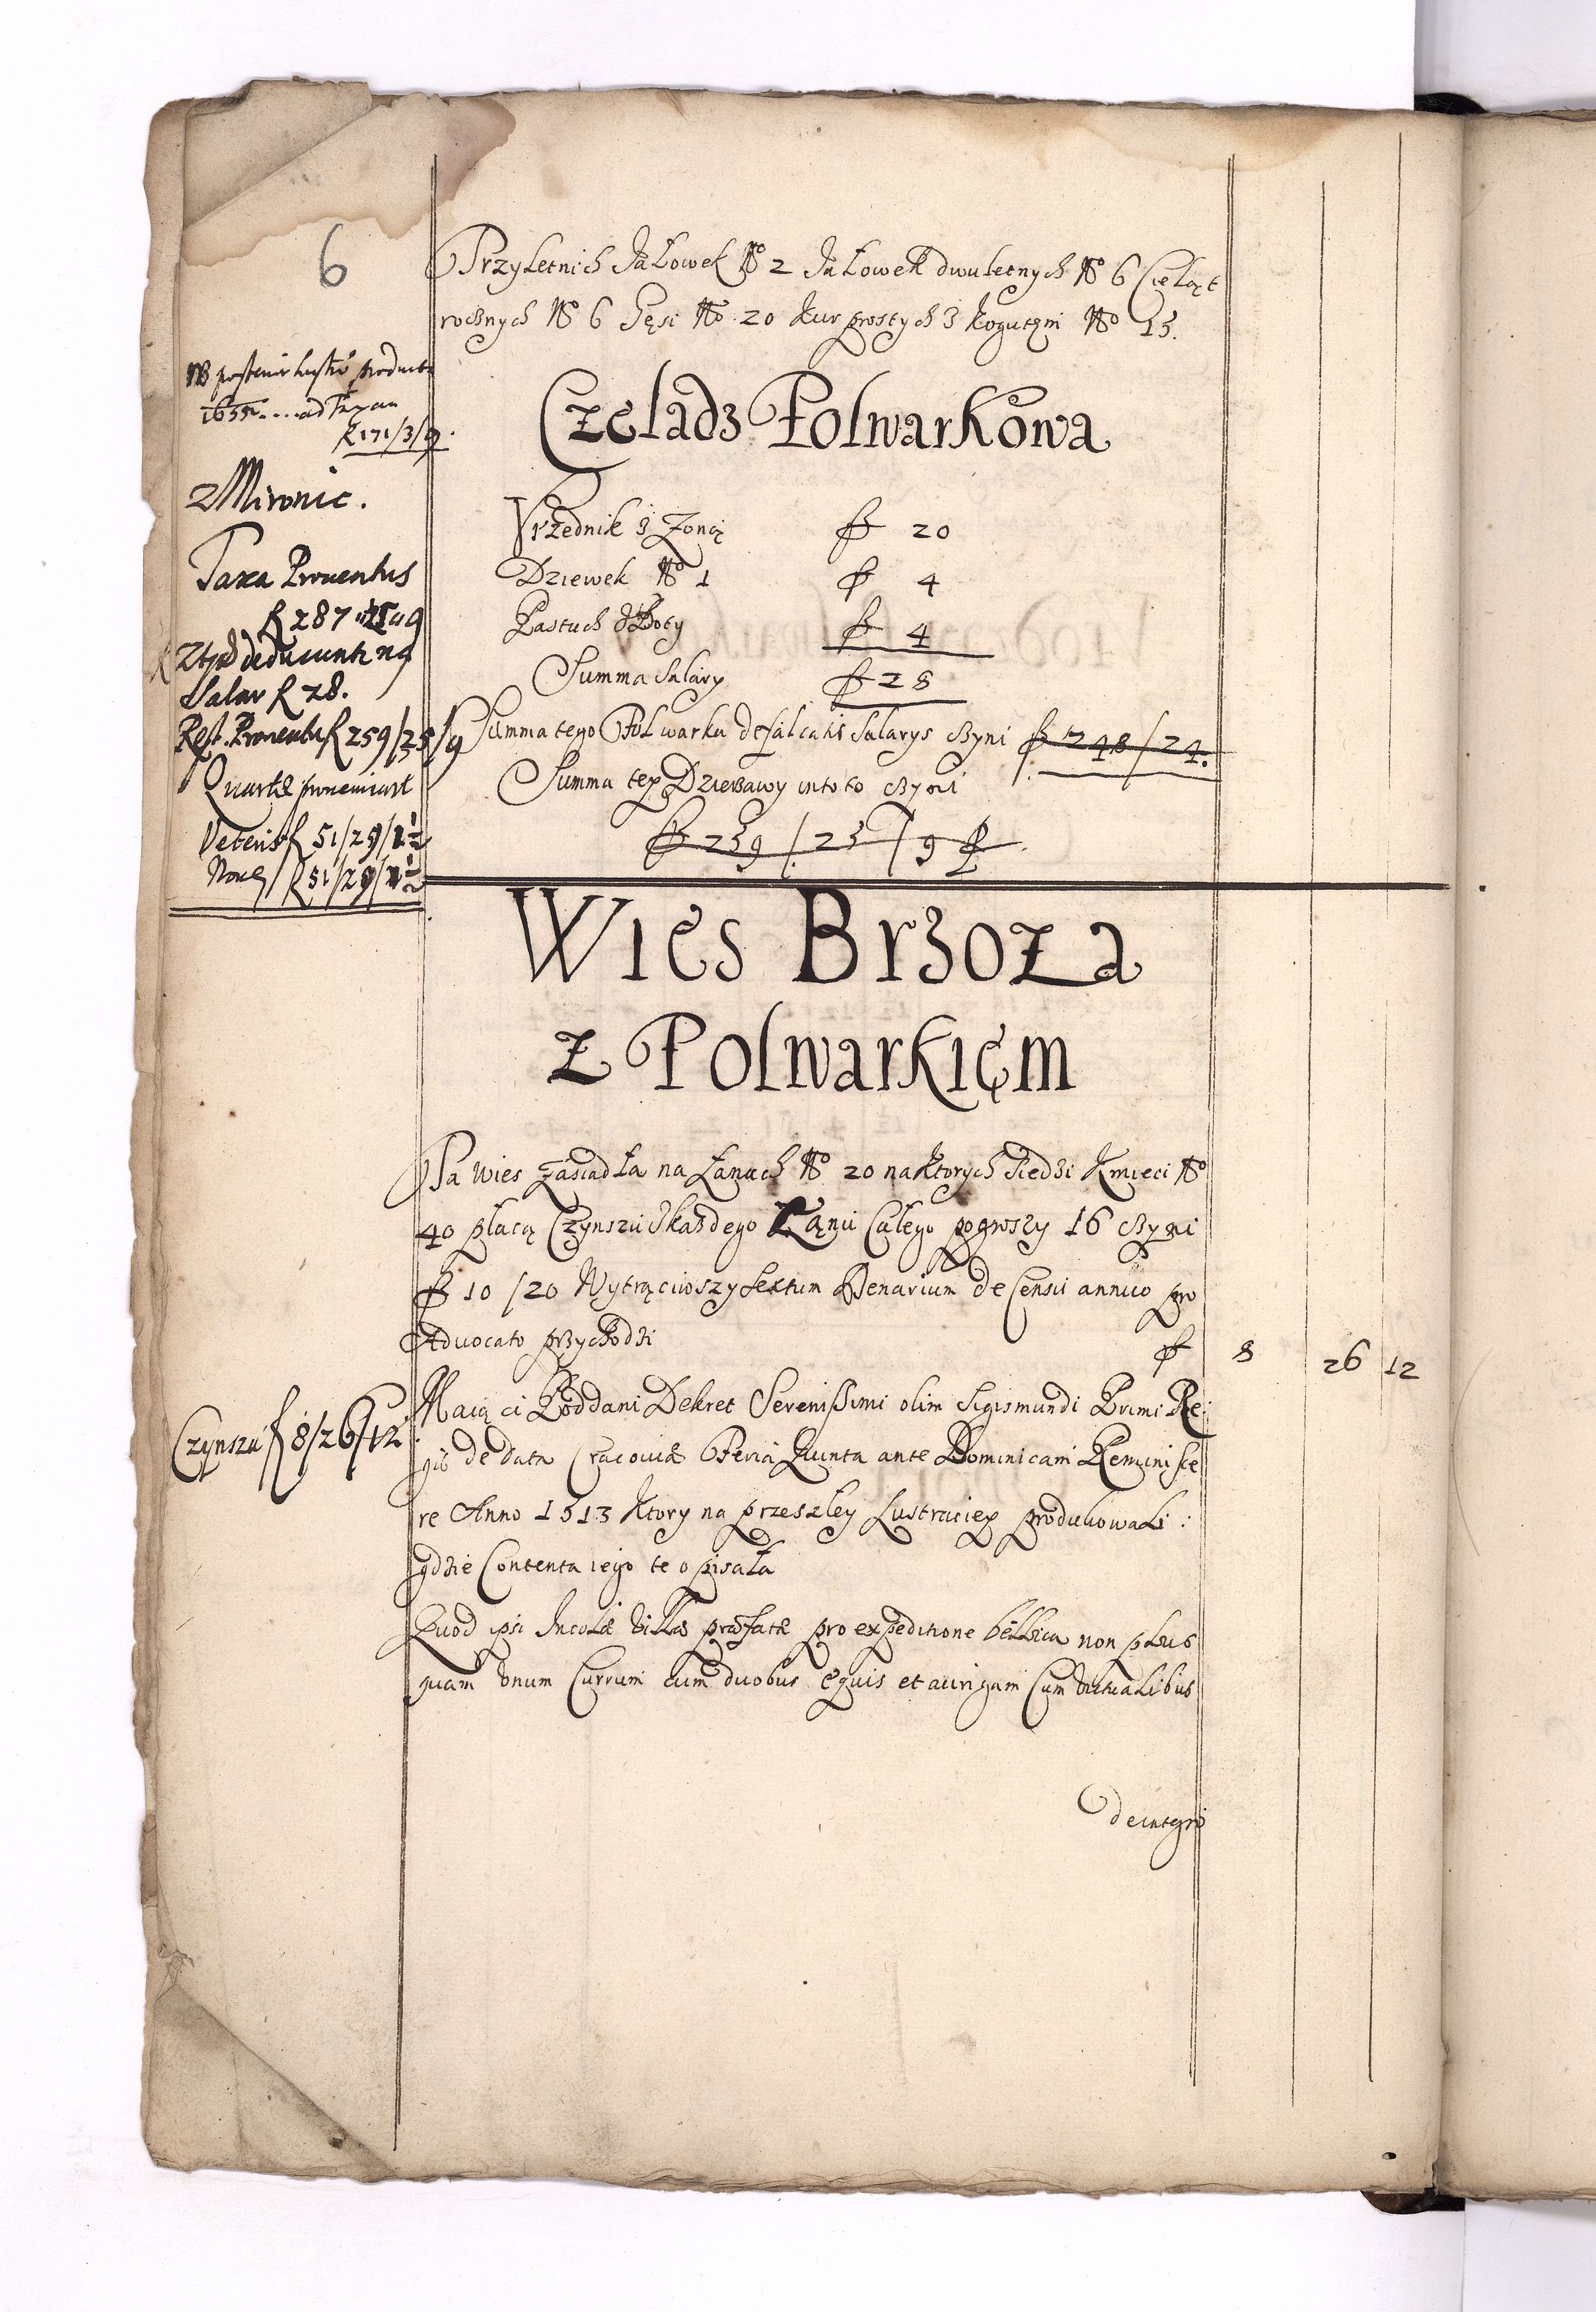 6
Przyletnich Jałowek No 2 Jałowek dwuletnych No 6 Cieląt
rocznych No 6 Gęsi No 20 Kur prostych z Kogutęm No 15.
NB
1655 ad
f 171/3/9.
z Mironic.
Taxa Prouentus
f 287
deducuntur
Salar f 28.
Rest. Prouentus f 259/25/9
Quarta
Veteris f 51/29/1½
Noua f 51/29/1½
Czeladz Folwarkowa
Vrzednik z Zoną f 20
Dziewek No 1 f 4
Pastuch f 4
Summa Salary f 28
Summa tego Folwarku defalcatis Salarys czyni f 248/24.
Summa tey Dzierzawy in toto czyni
f 259/25/9
Wies Brzoza
z Folwarkięm
Ta Wies zasiadła na Łanach No 20 na Ktorych siedzi Kmieci No
40 płacą Czynszu z każdego Łanu Całego po groszy 16 czyni
f 10/20 Wytrąciwszy sextum Denarium de Censu annuo pro
Aduocato przychodzi f 8 26 12
Czynszu f 8/26/12
Maią ci Poddani Dekret Serenissimi olim Sigismundi Primi Re:
gis de data Cracouiæ Feria Quinta ante Dominicam Reminisce
re Anno 1513 Ktory na przeszley Lustraciey produkowali:
gdzie Contenta iego te opisała
Quod ipsi Incolæ Villæ præfatæ pro expeditione bellica non plus
quam vnum Currum cum duobus equis et aurigam Cum victualibus
de integro